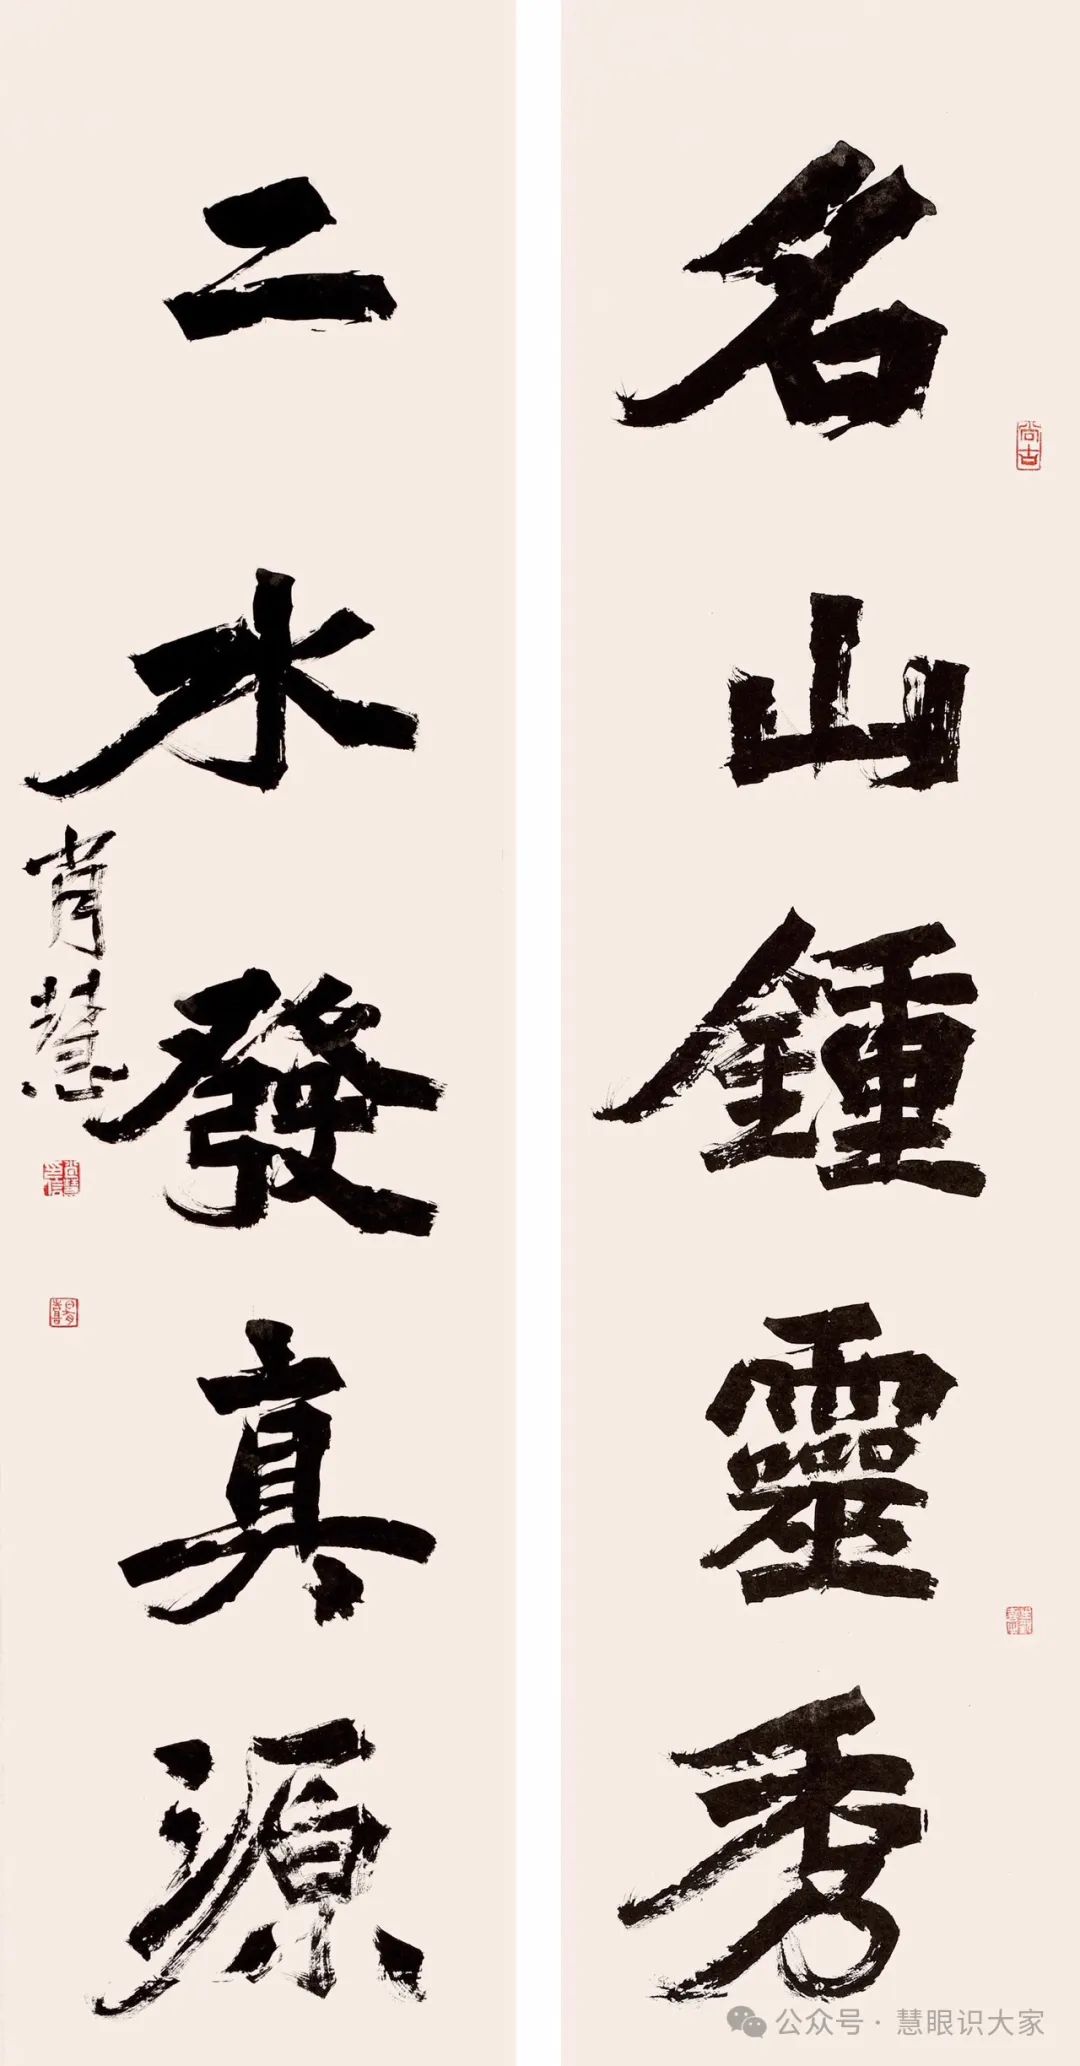 名山鍾靈秀
尚古
二水發真源
肖慧
公众号 · 慧眼识大家